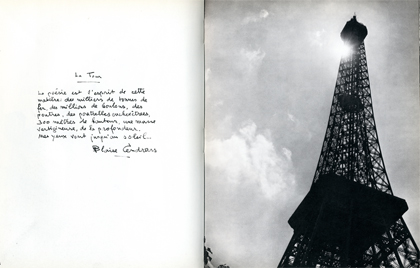 La Tour
La poésie est l'esprit de cette
matière: des milliers de barres de
fer, des millions de boulons, des
poutres, des poutrelles enchevêtrées,
300 mètres de hauteur, une masse
vertigineuse, de la profondeur.
Mes yeux vont jusqu'au soleil...
Blaise Cendrars